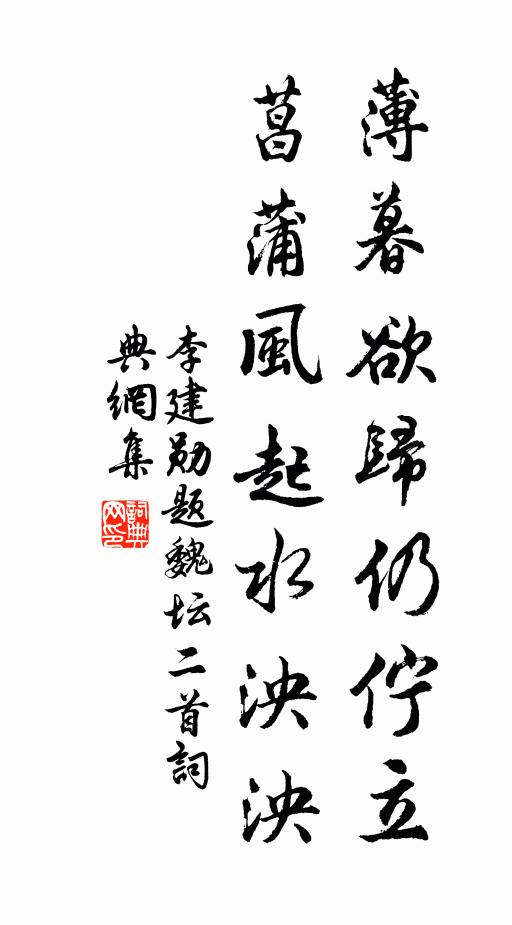 薄暮欲歸仍佇立
菖蒲風起水泱泱
李建勋题魏坛二首詞
典網集
詞典
网印